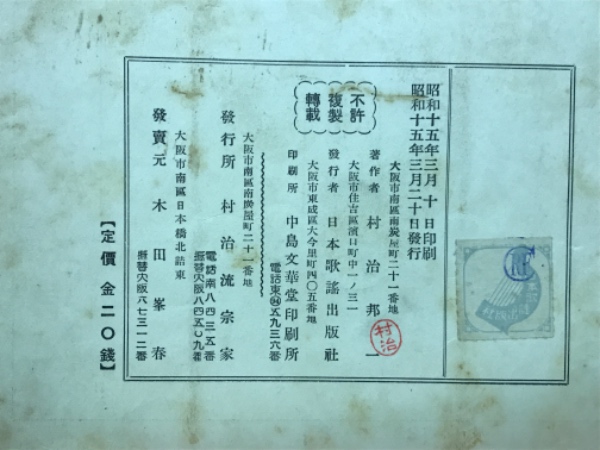 昭和十五年三月十日印刷
昭和十五年三月二十日發行
不許
複製
轉載
大阪市南區南炭屋町二十一番地
著作者 村治邦一
村治
大阪市住吉區濱口町中一ノ三一
發行者 日本歌謠出版社
大阪市東成區大今里町四〇五番地
印刷所 中島文華堂印刷所
電話東(94)五九三六番
大阪市南區南炭屋町二十一番地
發行所 村治流宗家
電話南八四三五番
振替大阪八四五〇九番
大阪市南區日本橋北詰東
發賣元 木田峯春
振替大阪八七三一二番
【定價金二〇錢】